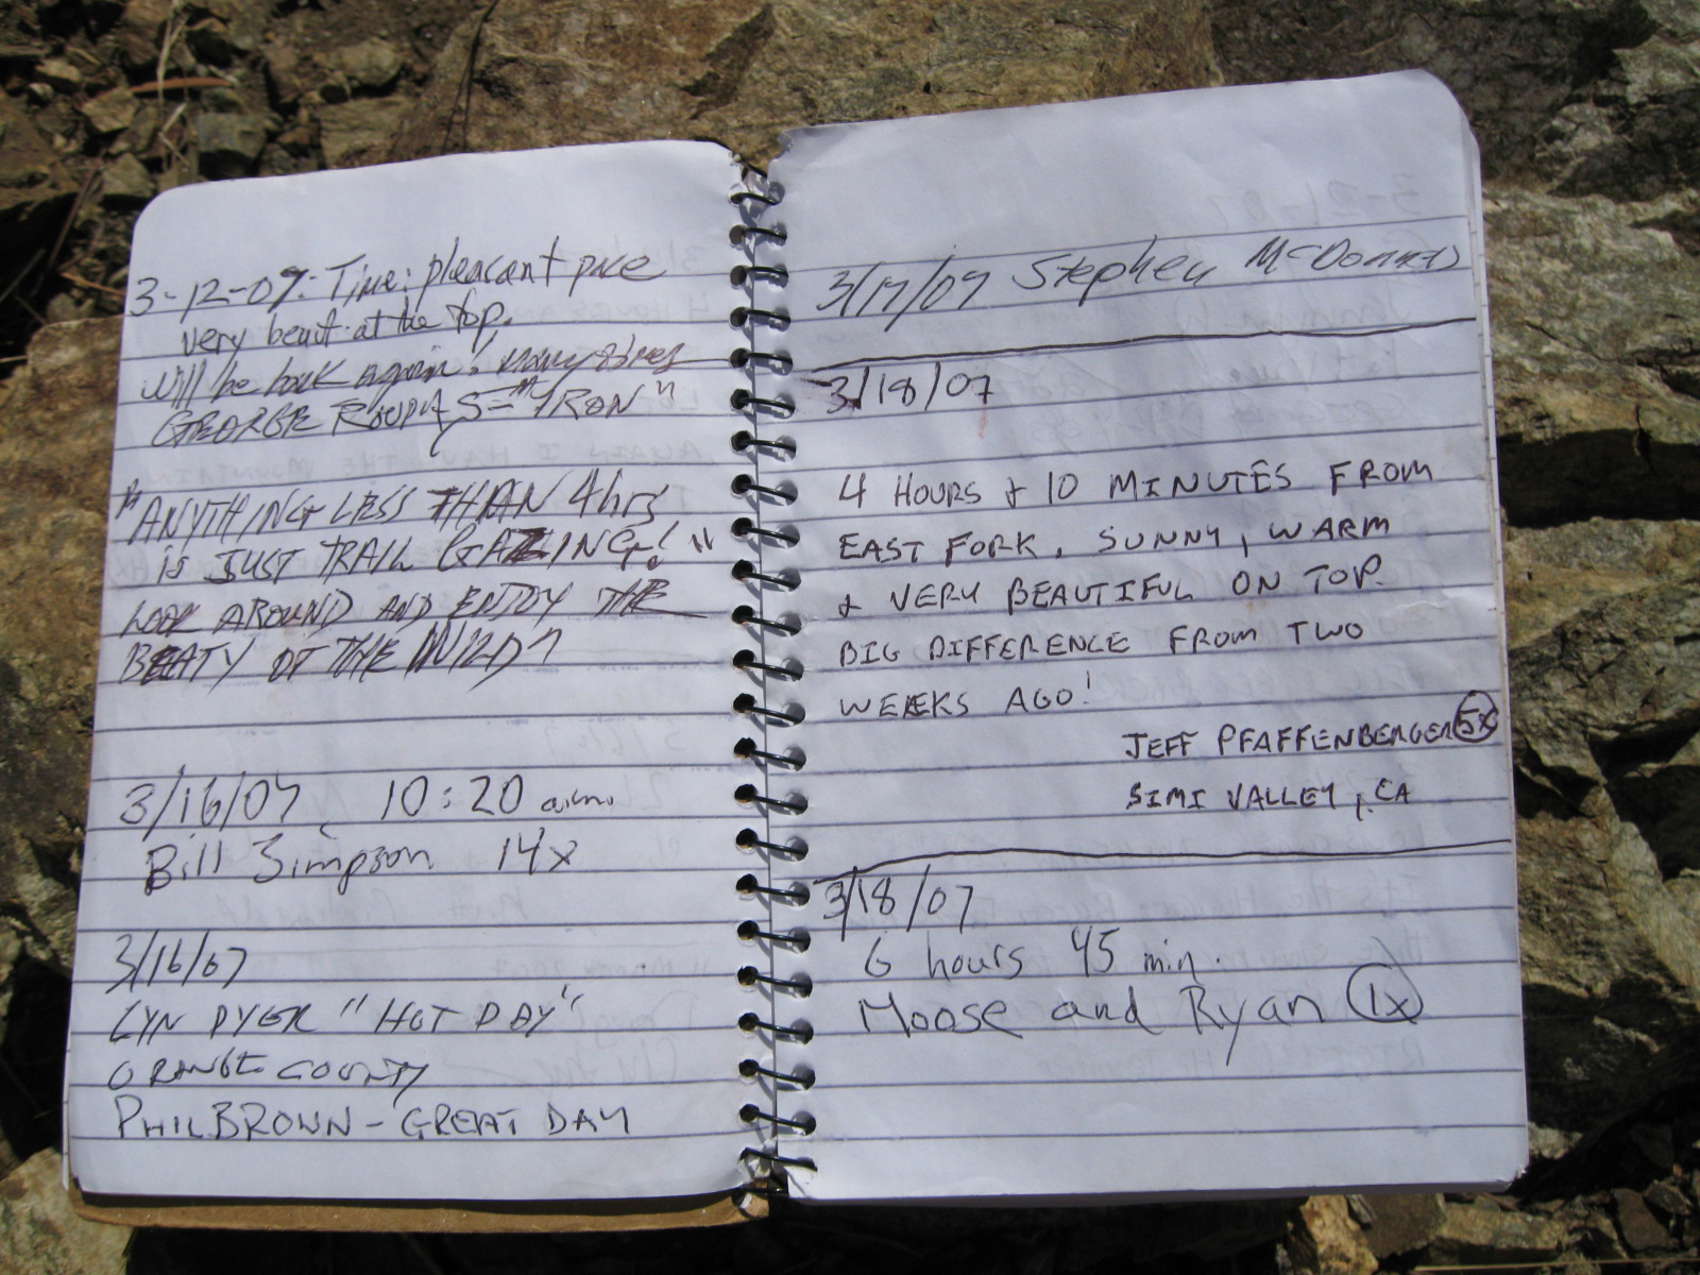 3-12-07: Time: pleasant pace
very beaut. at the top.
will be back again! many times
GEORGE "IRON"
"ANYTHING LESS THAN 4hrs
is JUST TRAIL GAZING!"
LOOK AROUND AND ENJOY THE
BEATY OF THE WILD"
3/16/07 10:20 a.m.
Bill Simpson 14x
3/16/07
LYN DYER "HOT DAY"
ORANGE COUNTY
PHIL BROWN - GREAT DAY
3/17/07 Stephen McDonald
3/18/07
4 HOURS & 10 MINUTES FROM
EAST FORK. SUNNY, WARM
& VERY BEAUTIFUL ON TOP.
BIG DIFFERENCE FROM TWO
WEEKS AGO!
JEFF PFAFFENBERGER 5x
SIMI VALLEY, CA
3/18/07
6 hours 45 min.
Moose and Ryan 1x